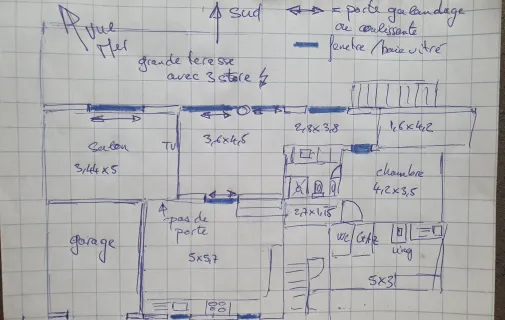 vue
mer
sud
= porte galandage
ou coulissante
fenetre/baie vitré
grande terasse
avec 3 store
salon
3,44x5
TV
3,6x4,5
2,8x3,8
1,6x4,2
chambre
4,2x3,5
2,7x1,15
pas de
porte
garage
5x5,7
WC
ling
5x3